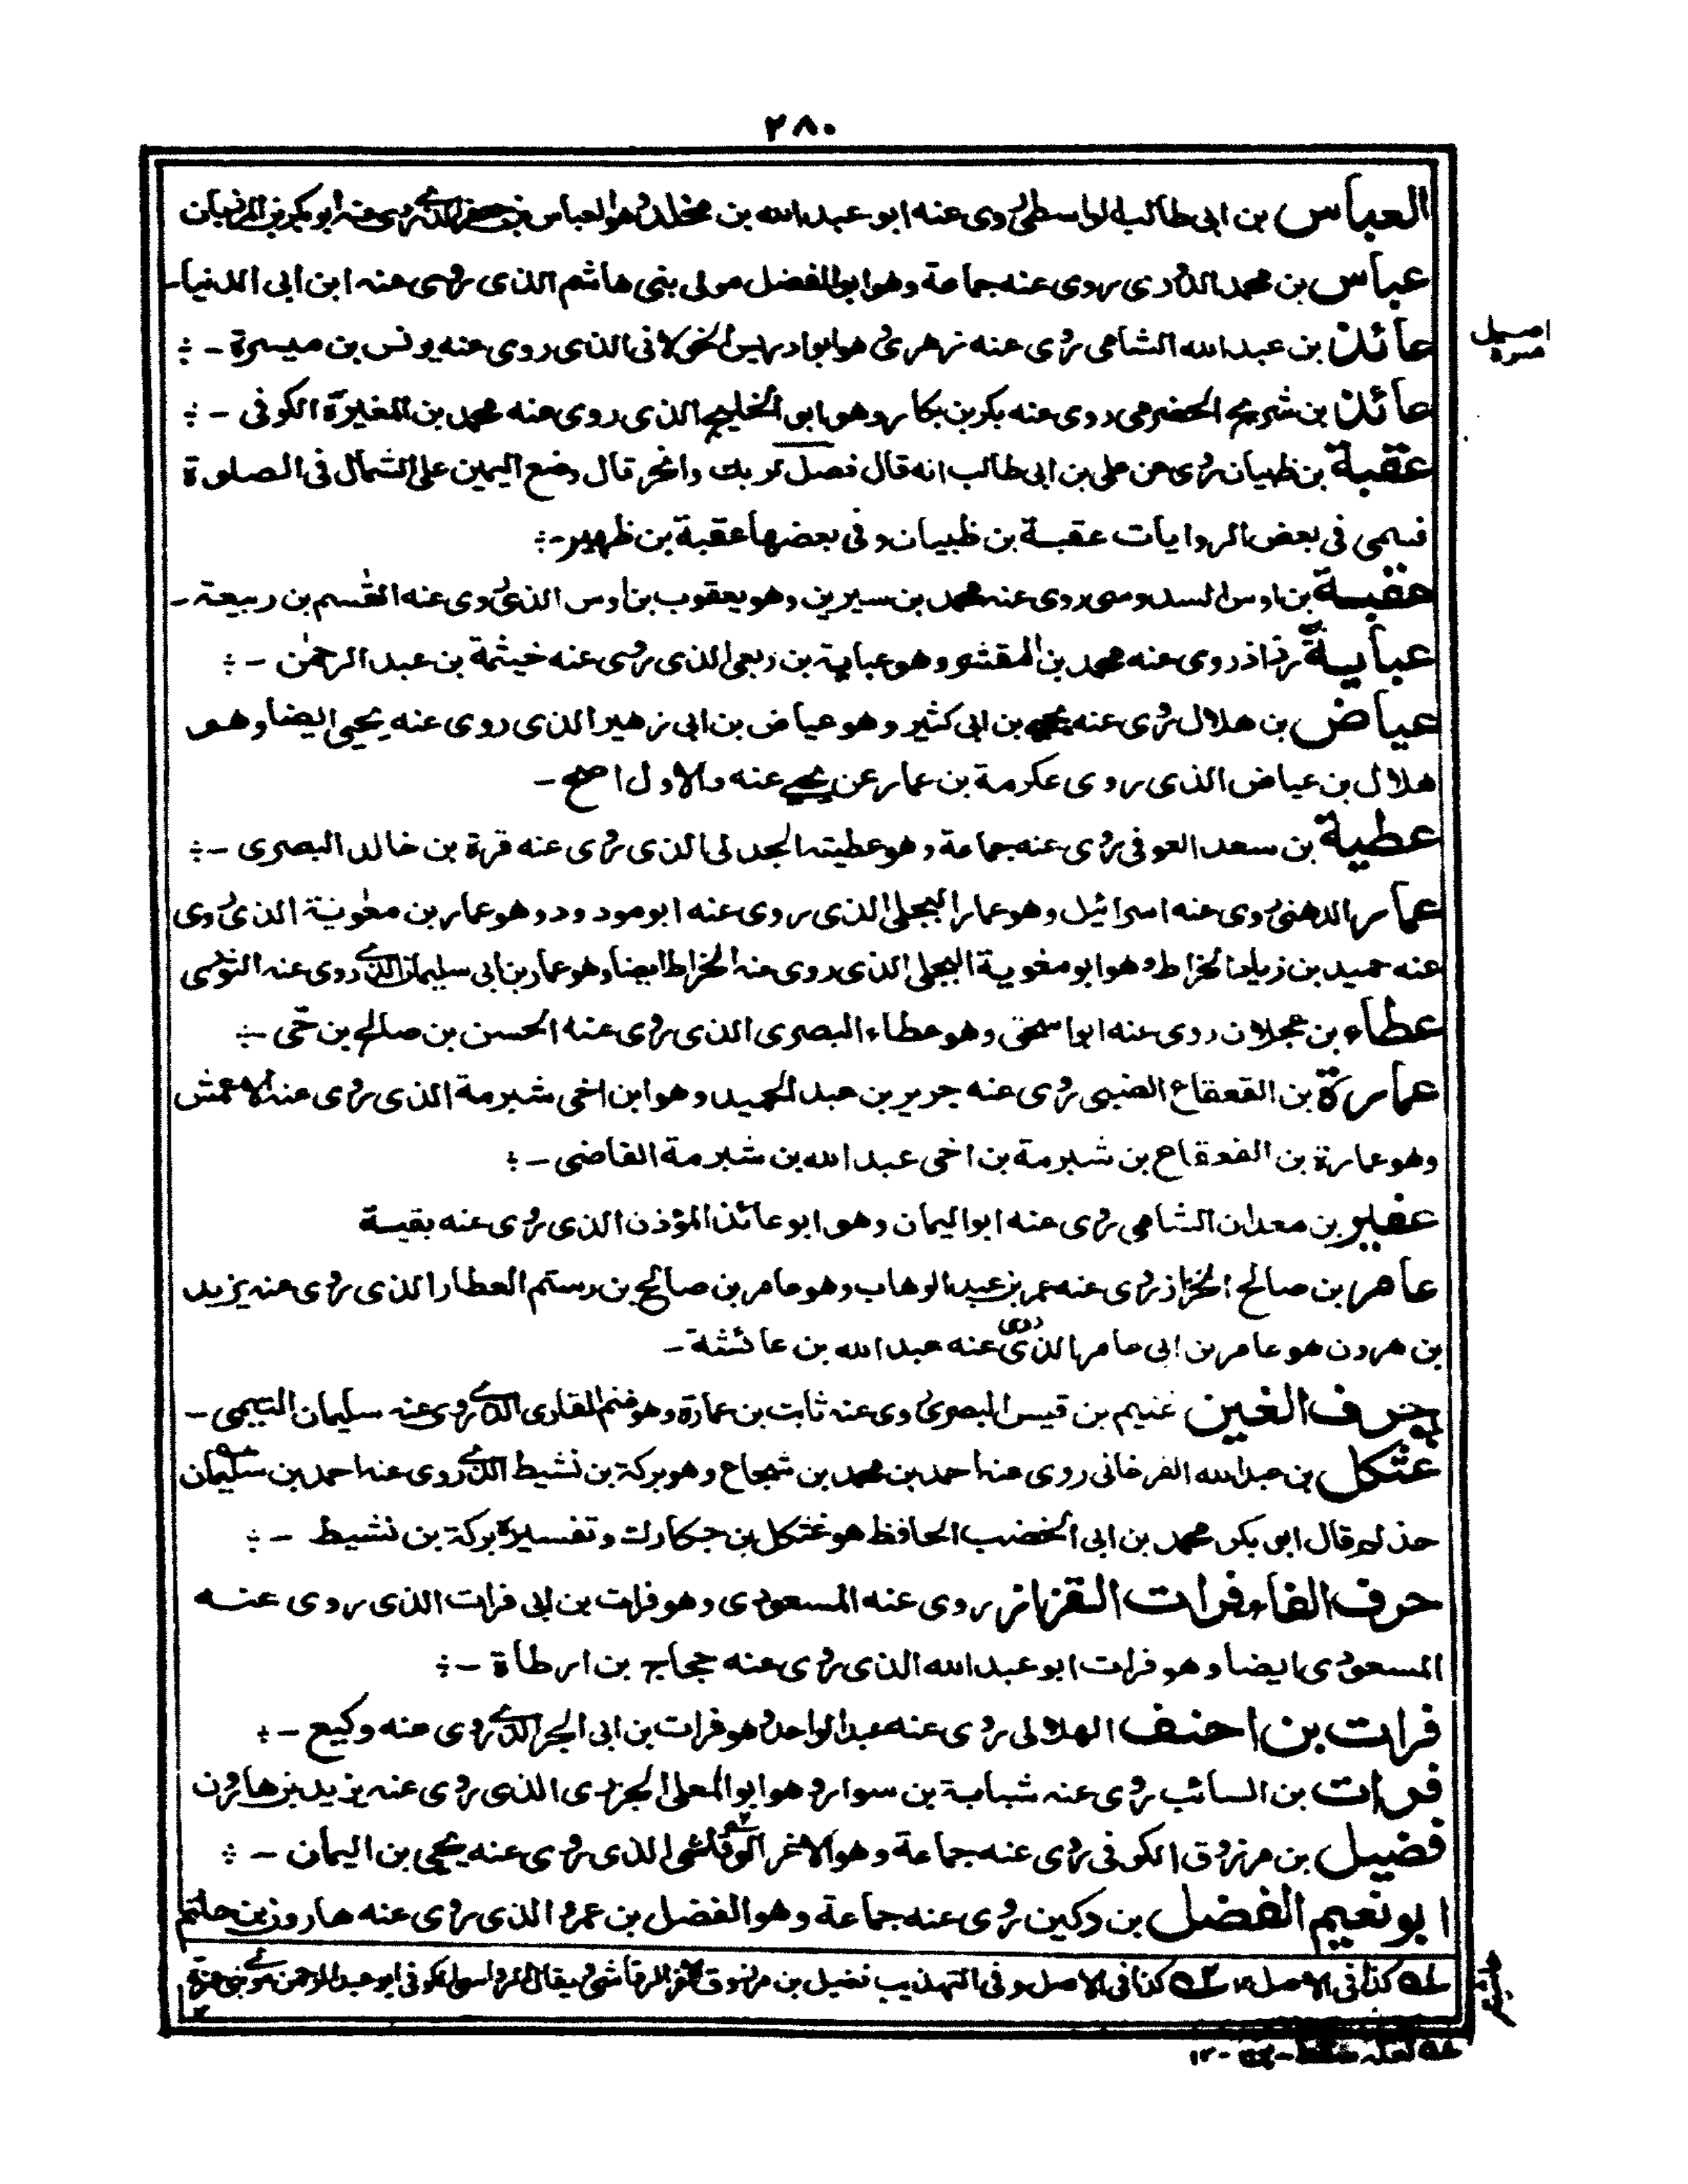 ٢٨٠
العباس بن ابی طالب الواسطی روی عنه ابو عبد الله بن مخلد وهو العباس بن جعفر الذی روی عنه ابو بکر بن المرزبان
عباس بن محمد الدوری روی عنه جماعة وهو ابو الفضل مولی بنی هاشم الذی روی عنه ابن ابی الدنیا-
عائذ بن عبد الله الشامی روی عنه زهری هو ابو ادریس الخولانی الذی روی عنه یونس بن میسرة -
اصیل
میسرة
عائذ بن شریح الحضرمی روی عنه بکر بن بکار وهو ابو الخلیج الذی روی عنه محمد بن المغیرة الکوفی -
عقبة بن ظبیان روی عن علی بن ابی طالب انه قال فصل لربک وانحر قال وضع الیمین علی الشمال فی الصلوة
فسمی فی بعض الروایات عقبة بن ظبیان وفی بعضها عقبة بن ظهیر-
عقبة بن اوس السدوسی روی عنه محمد بن سیرین وهو یعقوب بن اوس الذی روی عنه القٰسم بن ربیعة -
عبایة بن روی عنه محمد بن المنتشر وهو عبایة بن ربعی الذی روی عنه خیثمة بن عبد الرحمٰن -
عیاض بن هلال روی عنه یحیی بن ابی کثیر وهو عیاض بن ابی زهیر الذی روی عنه یحیی ایضا وهو
هلال بن عیاض الذی روی عکرمة بن عمار عن یحیی عنه والاول اصح -
عطیة بن سعد العوفی روی عنه جماعة وهو عطیة الجدلی الذی روی عنه قرة بن خالد البصری -
عمار الدهنی روی عنه اسرائیل وهو عمار البجلی الذی روی عنه ابو مودود وهو عمار بن معٰویة الذی روی
عنه حمید بن زیاد الخراط وهو ابو معٰویة البجلی الذی روی عنه الخراط ایضا وهو عمار بن ابی سلیمان الذی روی عنه الثوری
عطاء بن عجلان روی عنه ابو اسحٰق وهو عطاء البصری الذی روی عنه الحسن بن صالح بن حی -
عمارة بن القعقاع الضبی روی عنه جریر بن عبد الحمید وهو ابن اخی شبرمة الذی روی عنه الاعمش
وهو عمارة بن القعقاع بن شبرمة بن اخی عبد الله بن شبرمة القاضی -
عفیر بن معدان الشامی روی عنه ابو الیمان وهو ابو عائذ المؤذن الذی روی عنه بقیة
عامر بن صالح الخزاز روی عنه عمر بن عبد الوهاب وهو عامر بن صالح بن رستم العطار الذی روی عنه یزید
بن هرون هو عامر بن ابی عامر الذی روی عنه عبد الله بن عائشة -
حرف الغین غنیم بن قیس البصری روی عنه ثابت بن عمارة وهو غنیم القاری الذی روی عنه سلیمان التیمی -
غتکل بن عبد الله الفرغانی روی عنه احمد بن محمد بن شجاع وهو برکة بن نشیط الذی روی عنه احمد بن سلیمان
حذلم قال ابو بکر محمد بن ابی الخضب الحافظ هو غتکل بن حکارك وتفسیره برکة بن نشیط -
حرف الفاء فرات القزاز روی عنه المسعودی وهو فرات بن ابی فرات الذی روی عنه
المسعودی ایضا وهو فرات ابو عبد الله الذی روی عنه حجاج بن ارطاة -
فرات بن احنف الهلالی روی عنه عبد الواحد وهو فرات بن ابی البحر الذی روی عنه وکیع -
فرات بن السائب روی عنه شبابة بن سوار وهو ابو المعلی الجزری الذی روی عنه یزید بن هارون
فضیل بن مرزوق الکوفی روی عنه جماعة وهو الاغر الرقاشی الذی روی عنه یحیی بن الیمان -
ابو نعیم الفضل بن دکین روی عنه جماعة وهو الفضل بن عمرو الذی روی عنه هارون بن حاتم
کذا فی الاصل ١٢ کذا فی الاصل وفی التهذیب فضیل بن مرزوق الاغر الرقاشی ویقال الرواسی الکوفی ابو عبد الرحمن مولی بنی عنزة
١٢
لعله - ١٢